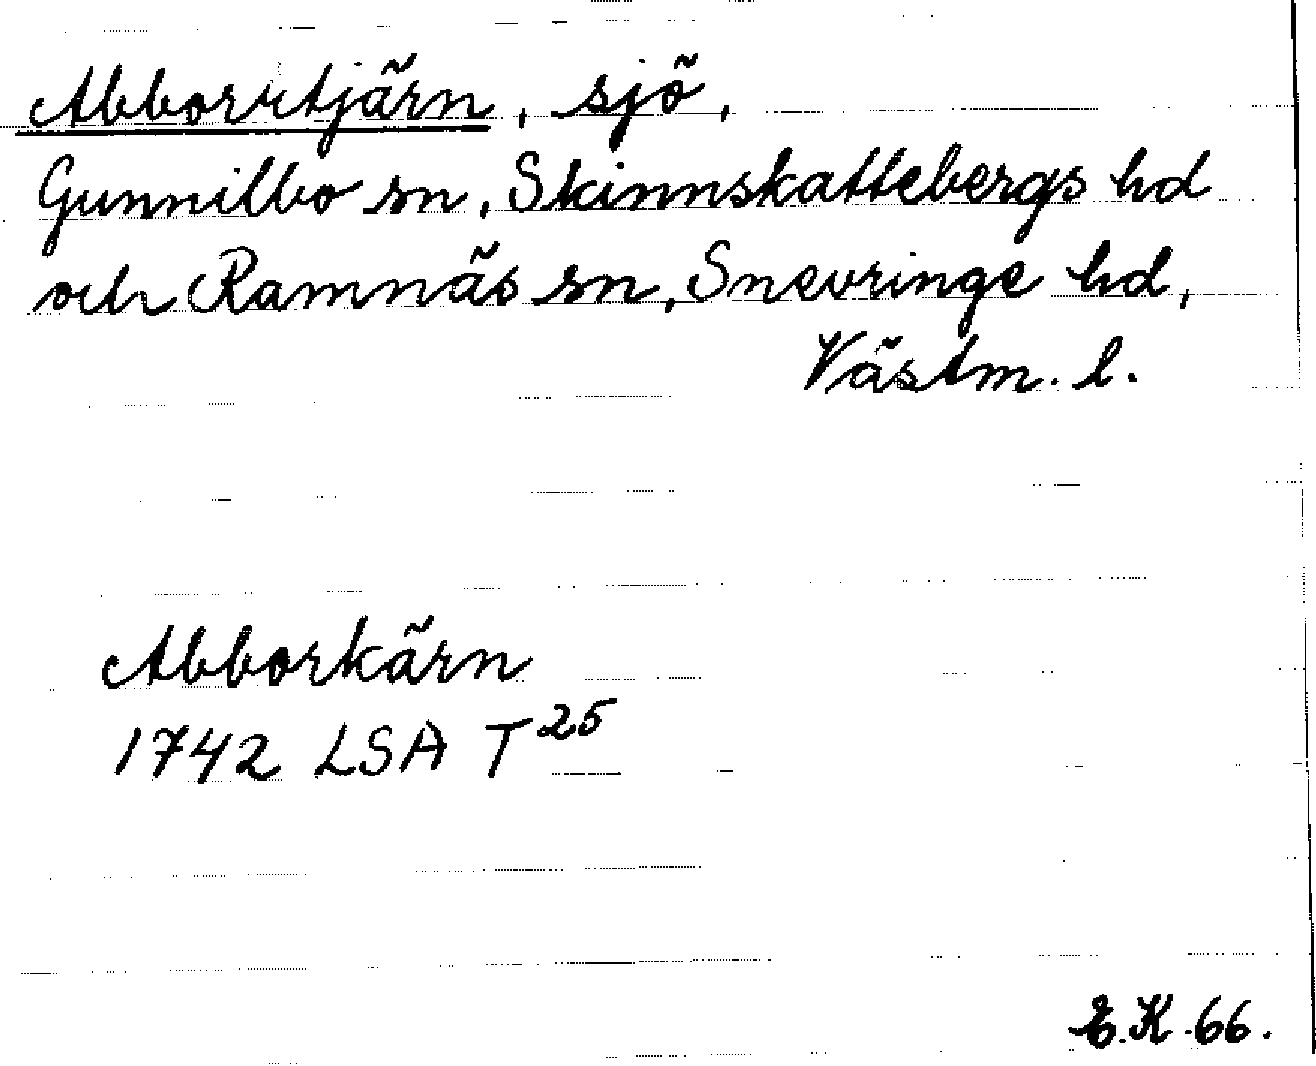 Abborrtjärn, sjö,
Gunnilbo sn, Skinnskattebergs hd
och Ramnäs sn, Snevringe hd,
Västm. l.
Abborkärn
1742 LSA T25
E.K. 66.